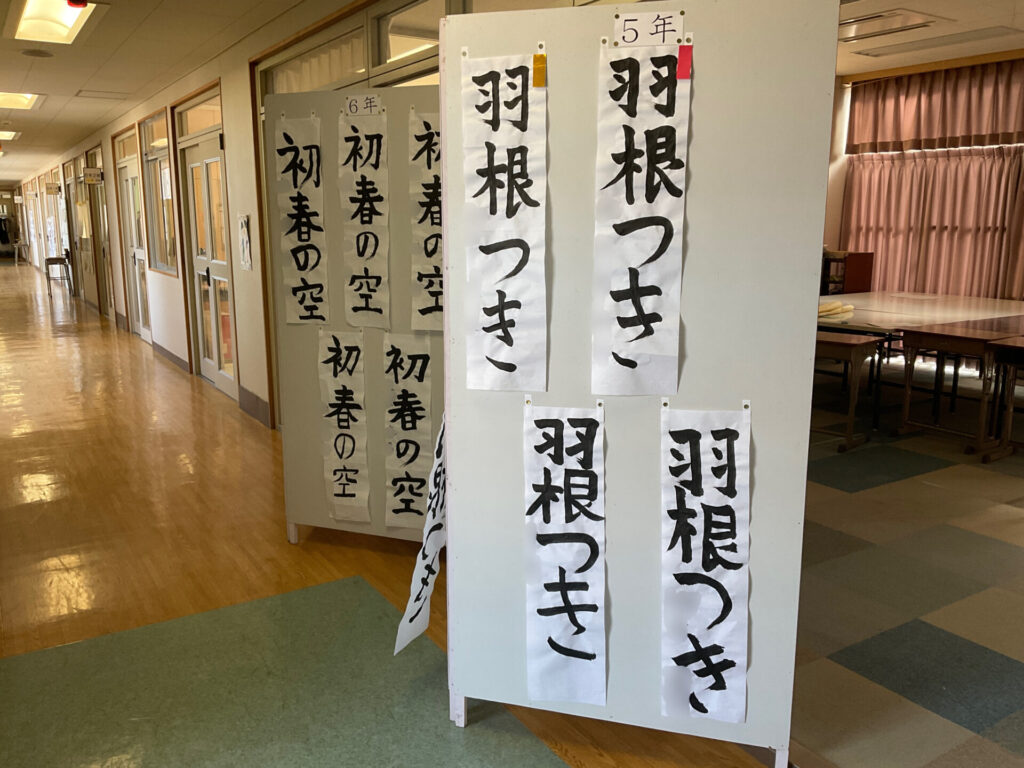 5年
羽根つき
羽根つき
羽根つき
羽根つき
6年
初春の空
初春の空
初春の空
初春の空
初春の空